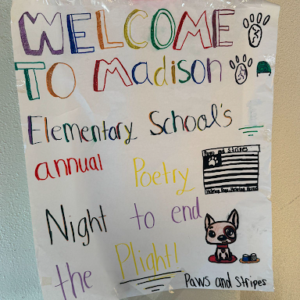 WELCOME
TO Madison
Elementary School's
annual Poetry
Night to end
the Plight!
Paws and Stripes